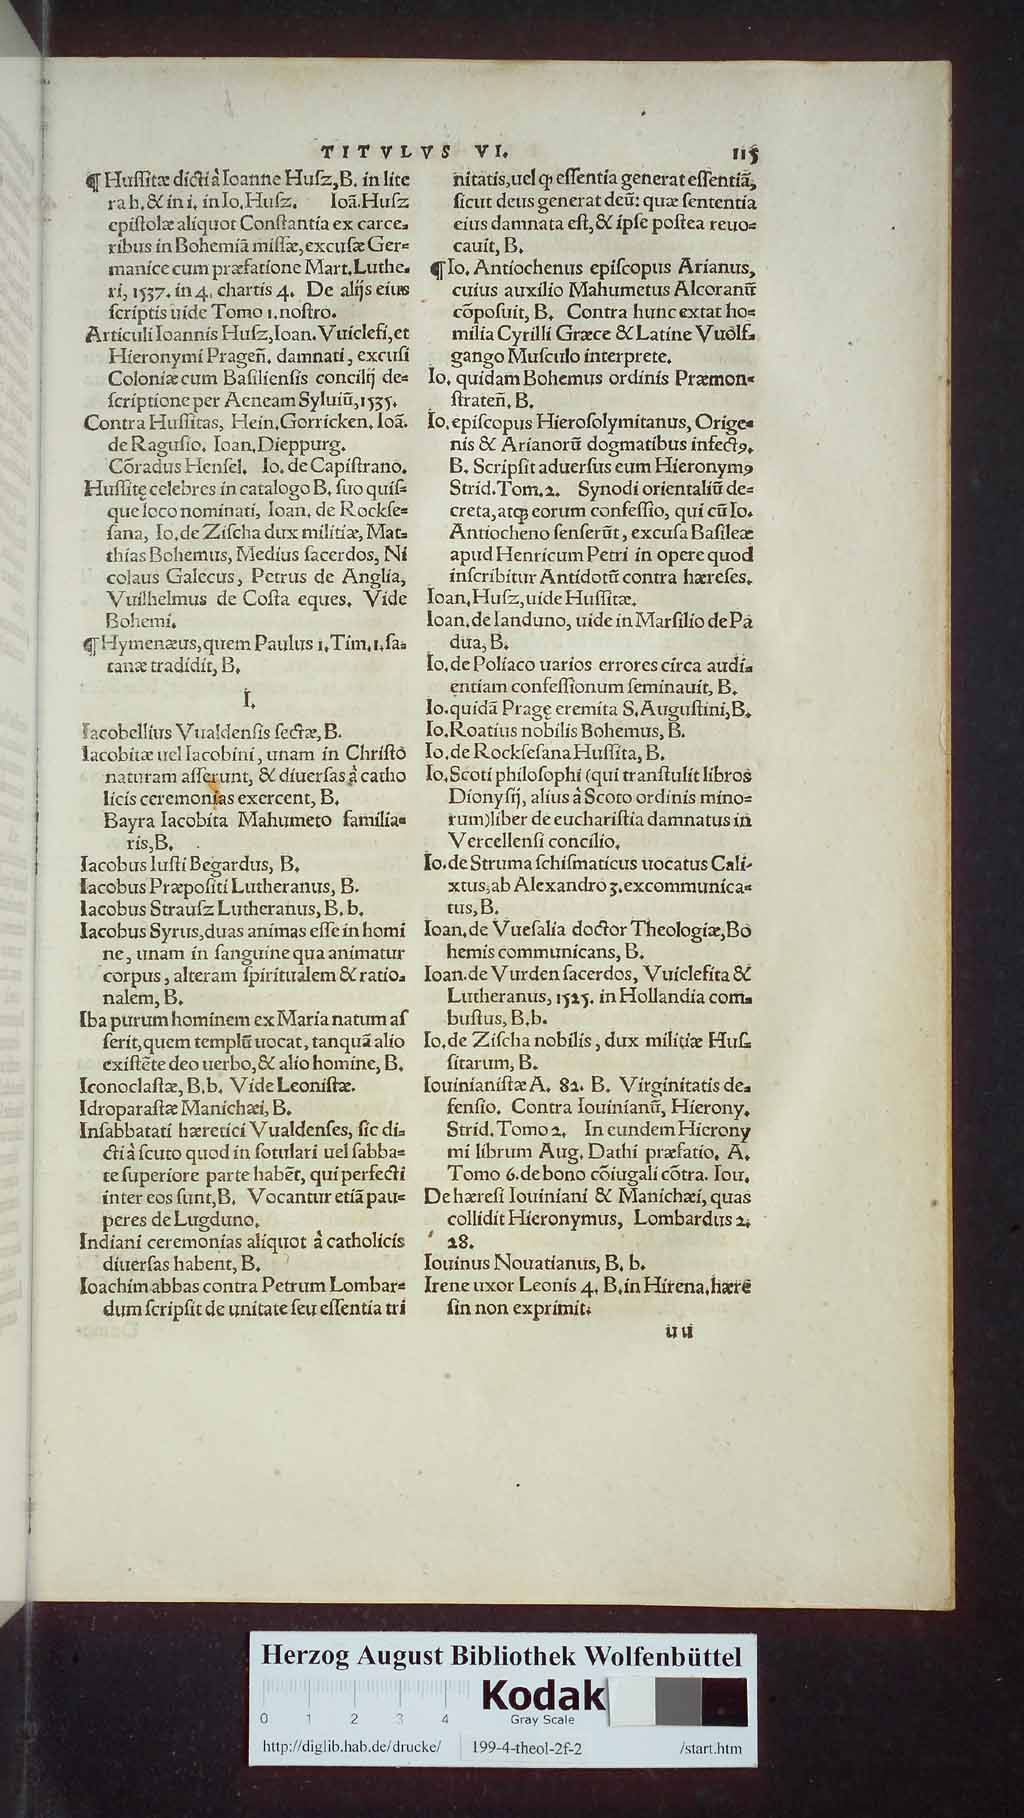 TITVLVS VI. 115
¶ Hussitæ dicti à Ioanne Husz, B. in lite
ra h. & in i, in Io. Husz. Ioã. Husz
epistolæ aliquot Constantia ex carce-
ribus in Bohemiã missæ, excusæ Ger-
manice cum præfatione Mart. Luthe-
ri, 1537. in 4. chartis 4. De alijs eius
scriptis uide Tomo 1. nostro.
Articuli Ioannis Husz, Ioan. Vuiclefi, et
Hieronymi Prageñ. damnati, excusi
Coloniæ cum Basiliensis concilij de-
scriptione per Aeneam Syluiũ, 1535.
Contra Hussitas, Hein. Gorricken. Ioã.
de Ragusio. Ioan. Dieppurg.
Cõradus Hensel. Io. de Capistrano.
Hussitę celebres in catalogo B. suo quis-
que loco nominati, Ioan. de Rockse-
sana, Io. de Zischa dux militiæ, Mat-
thias Bohemus, Medius sacerdos, Ni
colaus Galecus, Petrus de Anglia,
Vuilhelmus de Costa eques. Vide
Bohemi.
¶ Hymenæus, quem Paulus 1. Tim. 1. sa-
tanæ tradidit, B.
I.
Iacobellius Vualdensis sectæ, B.
Iacobitæ uel Iacobini, unam in Christo
naturam asserunt, & diuersas à catho
licis ceremonias exercent, B.
Bayra Iacobita Mahumeto familia-
ris, B.
Iacobus Iusti Begardus, B.
Iacobus Præpositi Lutheranus, B.
Iacobus Strausz Lutheranus, B. b.
Iacobus Syrus, duas animas esse in homi
ne, unam in sanguine qua animatur
corpus, alteram spiritualem & ratio-
nalem, B.
Iba purum hominem ex Maria natum as
serit, quem templũ uocat, tanquã alio
existẽte deo uerbo, & alio homine, B.
Iconoclastæ, B. b. Vide Leonistæ.
Idroparastæ Manichæi, B.
Insabbatati hæretici Vualdenses, sic di-
cti à scuto quod in sotulari uel sabba-
te superiore parte habẽt, qui perfecti
inter eos sunt, B. Vocantur etiã pau-
peres de Lugduno.
Indiani ceremonias aliquot à catholicis
diuersas habent, B.
Ioachim abbas contra Petrum Lombar-
dum scripsit de unitate seu essentia tri
nitatis, uel ꝙ essentia generat essentiã,
sicut deus generat deũ: quæ sententia
eius damnata est, & ipse postea reuo-
cauit, B.
¶ Io. Antiochenus episcopus Arianus,
cuius auxilio Mahumetus Alcoranũ
cõposuit, B. Contra hunc extat ho-
milia Cyrilli Græce & Latine Vuolf-
gango Musculo interprete.
Io. quidam Bohemus ordinis Præmon-
strateñ. B.
Io. episcopus Hierosolymitanus, Orige-
nis & Arianorũ dogmatibus infectꝰ.
B. Scripsit aduersus eum Hieronymꝰ
Strid. Tom. 2. Synodi orientaliũ de-
creta, atqꝫ eorum confessio, qui cũ Io.
Antiocheno senserũt, excusa Basileæ
apud Henricum Petri in opere quod
inscribitur Antidotũ contra hæreses.
Ioan. Husz, uide Hussitæ.
Ioan. de Ianduno, uide in Marsilio de Pa
dua, B.
Io. de Poliaco uarios errores circa audi-
entiam confessionum seminauit, B.
Io. quidã Pragę eremita S. Augustini, B.
Io. Roatius nobilis Bohemus, B.
Io. de Rocksesana Hussita, B.
Io. Scoti philosophi (qui transtulit libros
Dionysij, alius à Scoto ordinis mino-
rum) liber de eucharistia damnatus in
Vercellensi concilio.
Io. de Struma schismaticus uocatus Cali-
xtus, ab Alexandro 3. excommunica-
tus, B.
Ioan. de Vuesalia doctor Theologiæ, Bo
hemis communicans, B.
Ioan. de Vurden sacerdos, Vuiclefita &
Lutheranus, 1525. in Hollandia com-
bustus, B. b.
Io. de Zischa nobilis, dux militiæ Hus-
sitarum, B.
Iouinianistæ A. 82. B. Virginitatis de-
fensio. Contra Iouinianũ, Hierony.
Strid. Tomo 2. In eundem Hierony
mi librum Aug. Dathi præfatio. A.
Tomo 6. de bono cõiugali cõtra. Iou.
De hæresi Iouiniani & Manichæi, quas
collidit Hieronymus, Lombardus 2.
28.
Iouinus Nouatianus, B. b.
Irene uxor Leonis 4. B. in Hirena, hære
sin non exprimit.
u u
Herzog August Bibliothek Wolfenbüttel
Kodak
0 1 2 3 4 Gray Scale
http://diglib.hab.de/drucke/ 199-4-theol-2f-2 /start.htm